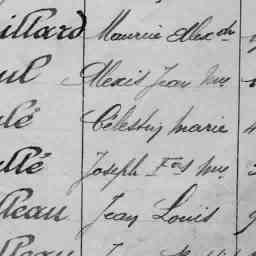 illard Maurice Alexdre
ul Alexis Jean Me
lé Célestin Marie
llé Joseph Fois Me
lleau Jean Louis
lleau